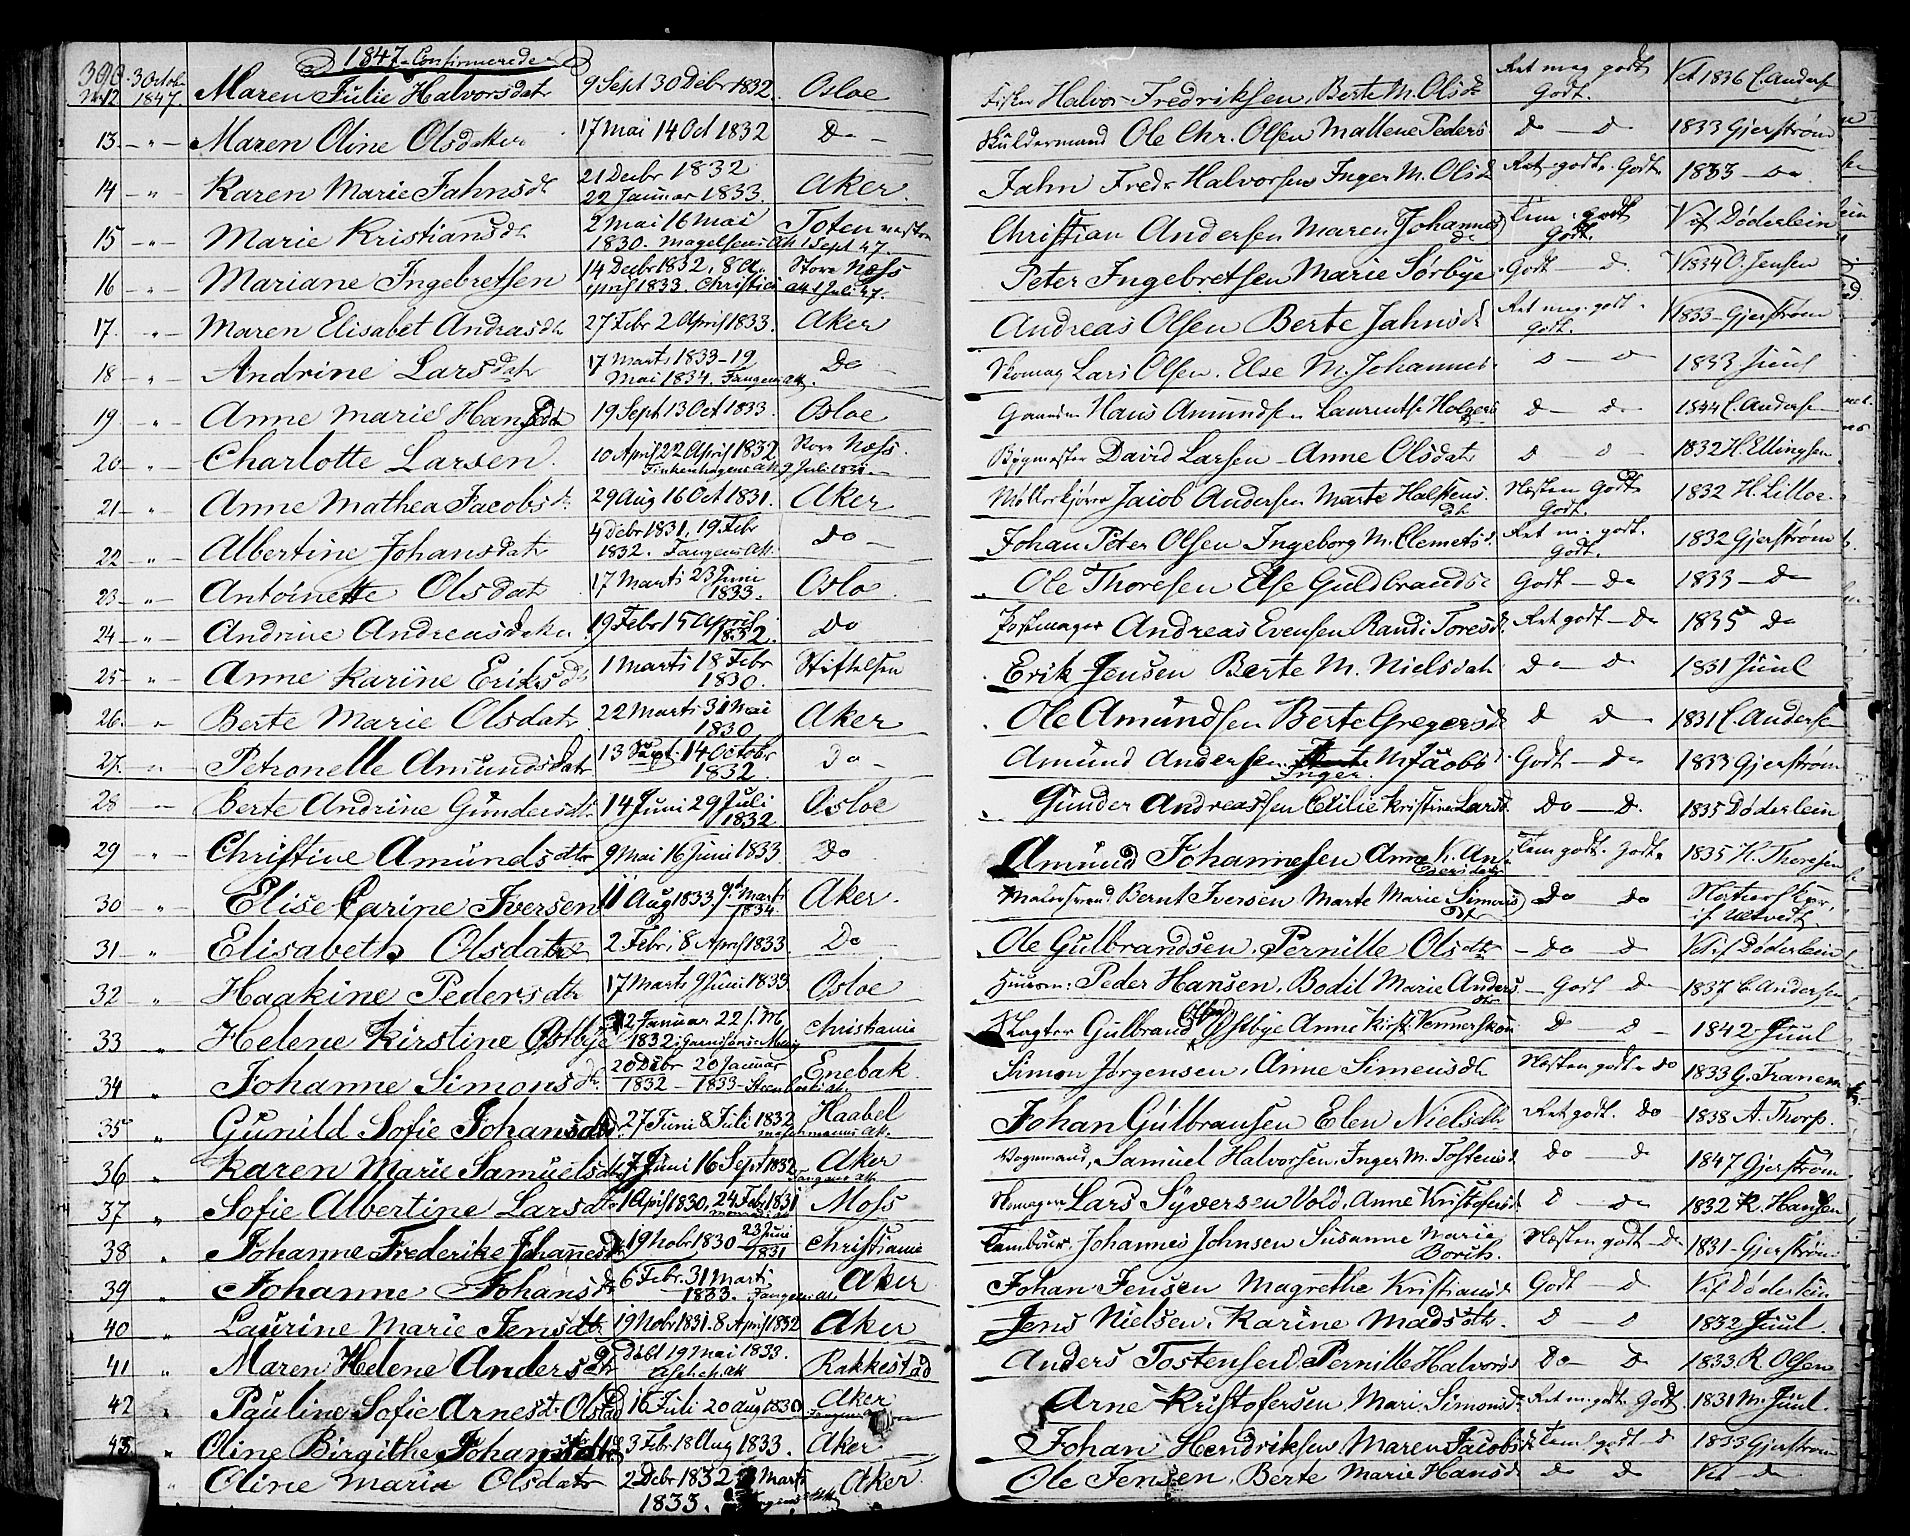 1847. Confirmerede
390. 3 Octobr
No 12 1847 Maren Julie Halvorsdatr 9 Sept 30 Debr 1832. Osloe Fisker Halvor Fredriksen, Berte M. Olsd Ret meg godt Godt. Vct 1836 C. Anders
13 — " — Maren Oline Olsd Aker 17 Mai 14 Oct 1832 Do — Skuldermand Ole Chr. Olsen Mallene Peders Do — Do 1833 Gjerstrøm
14 " Karen Marie Jahnsdt 21 Decbr 1832 22 Januar 1833. Aker Jahn Fredr Halvorsen Inger M. Olsd Ret godt. Godt 1833 — Do
15 — " — Marie Kristiansdt 2 Mai 16 Mai 1830. Magelsens Att 1 Sept 47. Toten Christian Andersen Maren Johannesdt Tem. godt Godt. V. if Døderlein
16 " Mariane Ingebretsen 14 Decbr 1832, 8 April 1833. Christia Att 1 Juli 47. Store Næss Peter Ingebretsen Marie Sørbye Godt — Do. V 1834 O. Jensen
17. " Maren Elisabet Andrasdt 27 Febr 2 April 1833. Aker Andreas Olsen Berte Jahnsd Ret meg. godt Godt. V 1833 Gjerstrøm
18 — " — Andrine Larsdatr 17 Marts 1833 - 19 Mai 1834. Fangens Att. Do Skomag Lars Olsen. Else M. Johannes Do — Do 1833 Juul
19 " Anne Marie Hansdtr 19 Sept 13 Oct 1833. Osloe Hans Amundsen Laurentse Holgersd Do — Do 1844 C. Andersen
20 — " — Charlotte Larsen 10 April 22 April 1832 Finkenhagens Att 9 Juli Store Næss. Bøgmester David Larsen Anne Olsdatr Do Do 1832 H. Ellingsen
21 " Anne Mathea Jacobsdt. 29 Aug 16 Oct 1831. Aker Møllerkjører Jacob Andersen Marte Halstensdt. Næsten Godt Godt. 1832 H. Lilloe
22 — " — Albertine Johansdatr 4 Debr 1831, 19 Febr 1832. Fangens Att. Do — Johan Peter Olsen Ingeborg M. Clemetsd. Ret m. godt. Godt. 1832 Gjerstrøm
23 — " — Antoinette Olsdatr 17 Marts 23 Juni 1833. Oslo Ole Thoresen Else Guldbrandsd Godt — Do 1833 — Do
24 — " — Andrine Andreasd Aker 19 Febr 15 April 1832. Do Postmager Andreas Evensen Randi Toresd. Ret godt — Do 1835 Do
25 — " Anne Karine Eriksdt 1 Marts 18 Febr 1830. Stiftelsen Erik Jensen Berte M. Nielsdatr Do — Do 1831 Juul
26 — Berte Marie Olsdatr 22 Marts 31 Mai 1830 Aker Ole Amundsen Berte Gregersd Do Do 1831 C. Anderse
27. " Petronelle Amundsdatr 13 Sept. 14 Octobr 1832. Do — Amund Andersen. Inger M. Jacobsd Godt — Do 1833 Gjerstrøm
28 — Berte Andrine Gundersdtr 14 Juni 29 Juli 1832. Osloe Gunder Andreassen Cicilie Kristine Larsd. Do — Do. 1835 Døderlein
29 — " — Christine Amundsdtr 9 Mai 16 Juni 1833 Do Amund Johannesen Anne K. Andersdatr Tem godt. Godt. 1835 H. Thoresen
30 " Elise Carine Iversen 11 Aug 1833 9d Marts 1834. Aker. Bernt Iversen Marte Marie Simonsdt Do Do
31 — " Elisabeth Olsdatr 2 Febr. 8 April 1833. Do Ole Gulbrandsen, Pernille Olsdtr — Do Do Vct if Døderlein
32 " Haakine Pedersdtr 17 Marts 9 Juni 1833 Osloe Huusm: Peder Hansen, Bodil Marie Andersdtr — Godt Do 1837 C. Andersen
33 " Helene Kirstine Østbye 12 Januar 22 1832 Garnisons Christiania Slagter Gulbrand Olsen Østbye Anne Kirst. Vennerskou Do — Do — 1842 Juul
34 " Johanne Simonsdtr. 20 Debr 1832 — 20 Januar 1833 — Enebak. Simon Jørgensen, Anne Simensdt Næsten godt Do 1833 G. Franem
35 " Gunild Sofie Johansdtr. 27 Juni 8 Juli 1832 Haabel Johan Gulbransen Elen Nielsdtr Ret godt. Do 1838 A. Thorp.
36 " Karen Marie Samuelsdtr 7 Juni 16 Sept 1832 Fangens Att. Aker Vognmand, Samuel Halvorsen. Inger M. Tostensd Do — Do 1847 Gjerstrøm
37 " Sofie Albertine Larsdtr 1 April 1830, 24 Febr 1831 Moss Skomager Lars Syversen Vold, Anne Kristofersd Do — Do 1832 K. Hansen
38 " Johanne Frederike Johannesd. 19 Nobr 1830 23 Juni 1831 Christiania Tambour Johannes Johnsen Susanne Marie Borch. Næsten godt — Do 1831 — Gjerstrøm
39 " Johanne Johansdt 6 Febr. 31 Marts, 1833. Fangens Att. Aker Johan Jensen Magrethe Kristiansd Godt Do V. if Døderlein
40 " Laurine Marie Jensdtr. 19 Nobr 1831. 8 April 1832 Aker Jens Nielsen. Karine Madsdtr. Do — Do 1832 Juul.
41 " Maren Helene Andersdtr Døbt 19 Mai 1833. Att Rakkestad Anders Tostensen. Pernille Halvorsd Do — Do 1833. R. Olsen
42 " Pauline Sofie Arnesdt. Olstad 16 Juli 20 Aug 1830 Aker Fangens Arne Kristofersen Mari Simonsd. Ret m. godt Godt. 1831 M. Juul.
43. " Oline Birgithe Johansdtr 3 Feb. 18 Aug 1833. Aker — Johan Hendriksen, Maren Jacobsd Tem godt — Do 1833 Gjerstrøm
" Oline Maria Olsdatr 2 Debr 1832 Marts 1833. Aker Ole Jensen, Berte Marie Hansd. Do Do Vct Do